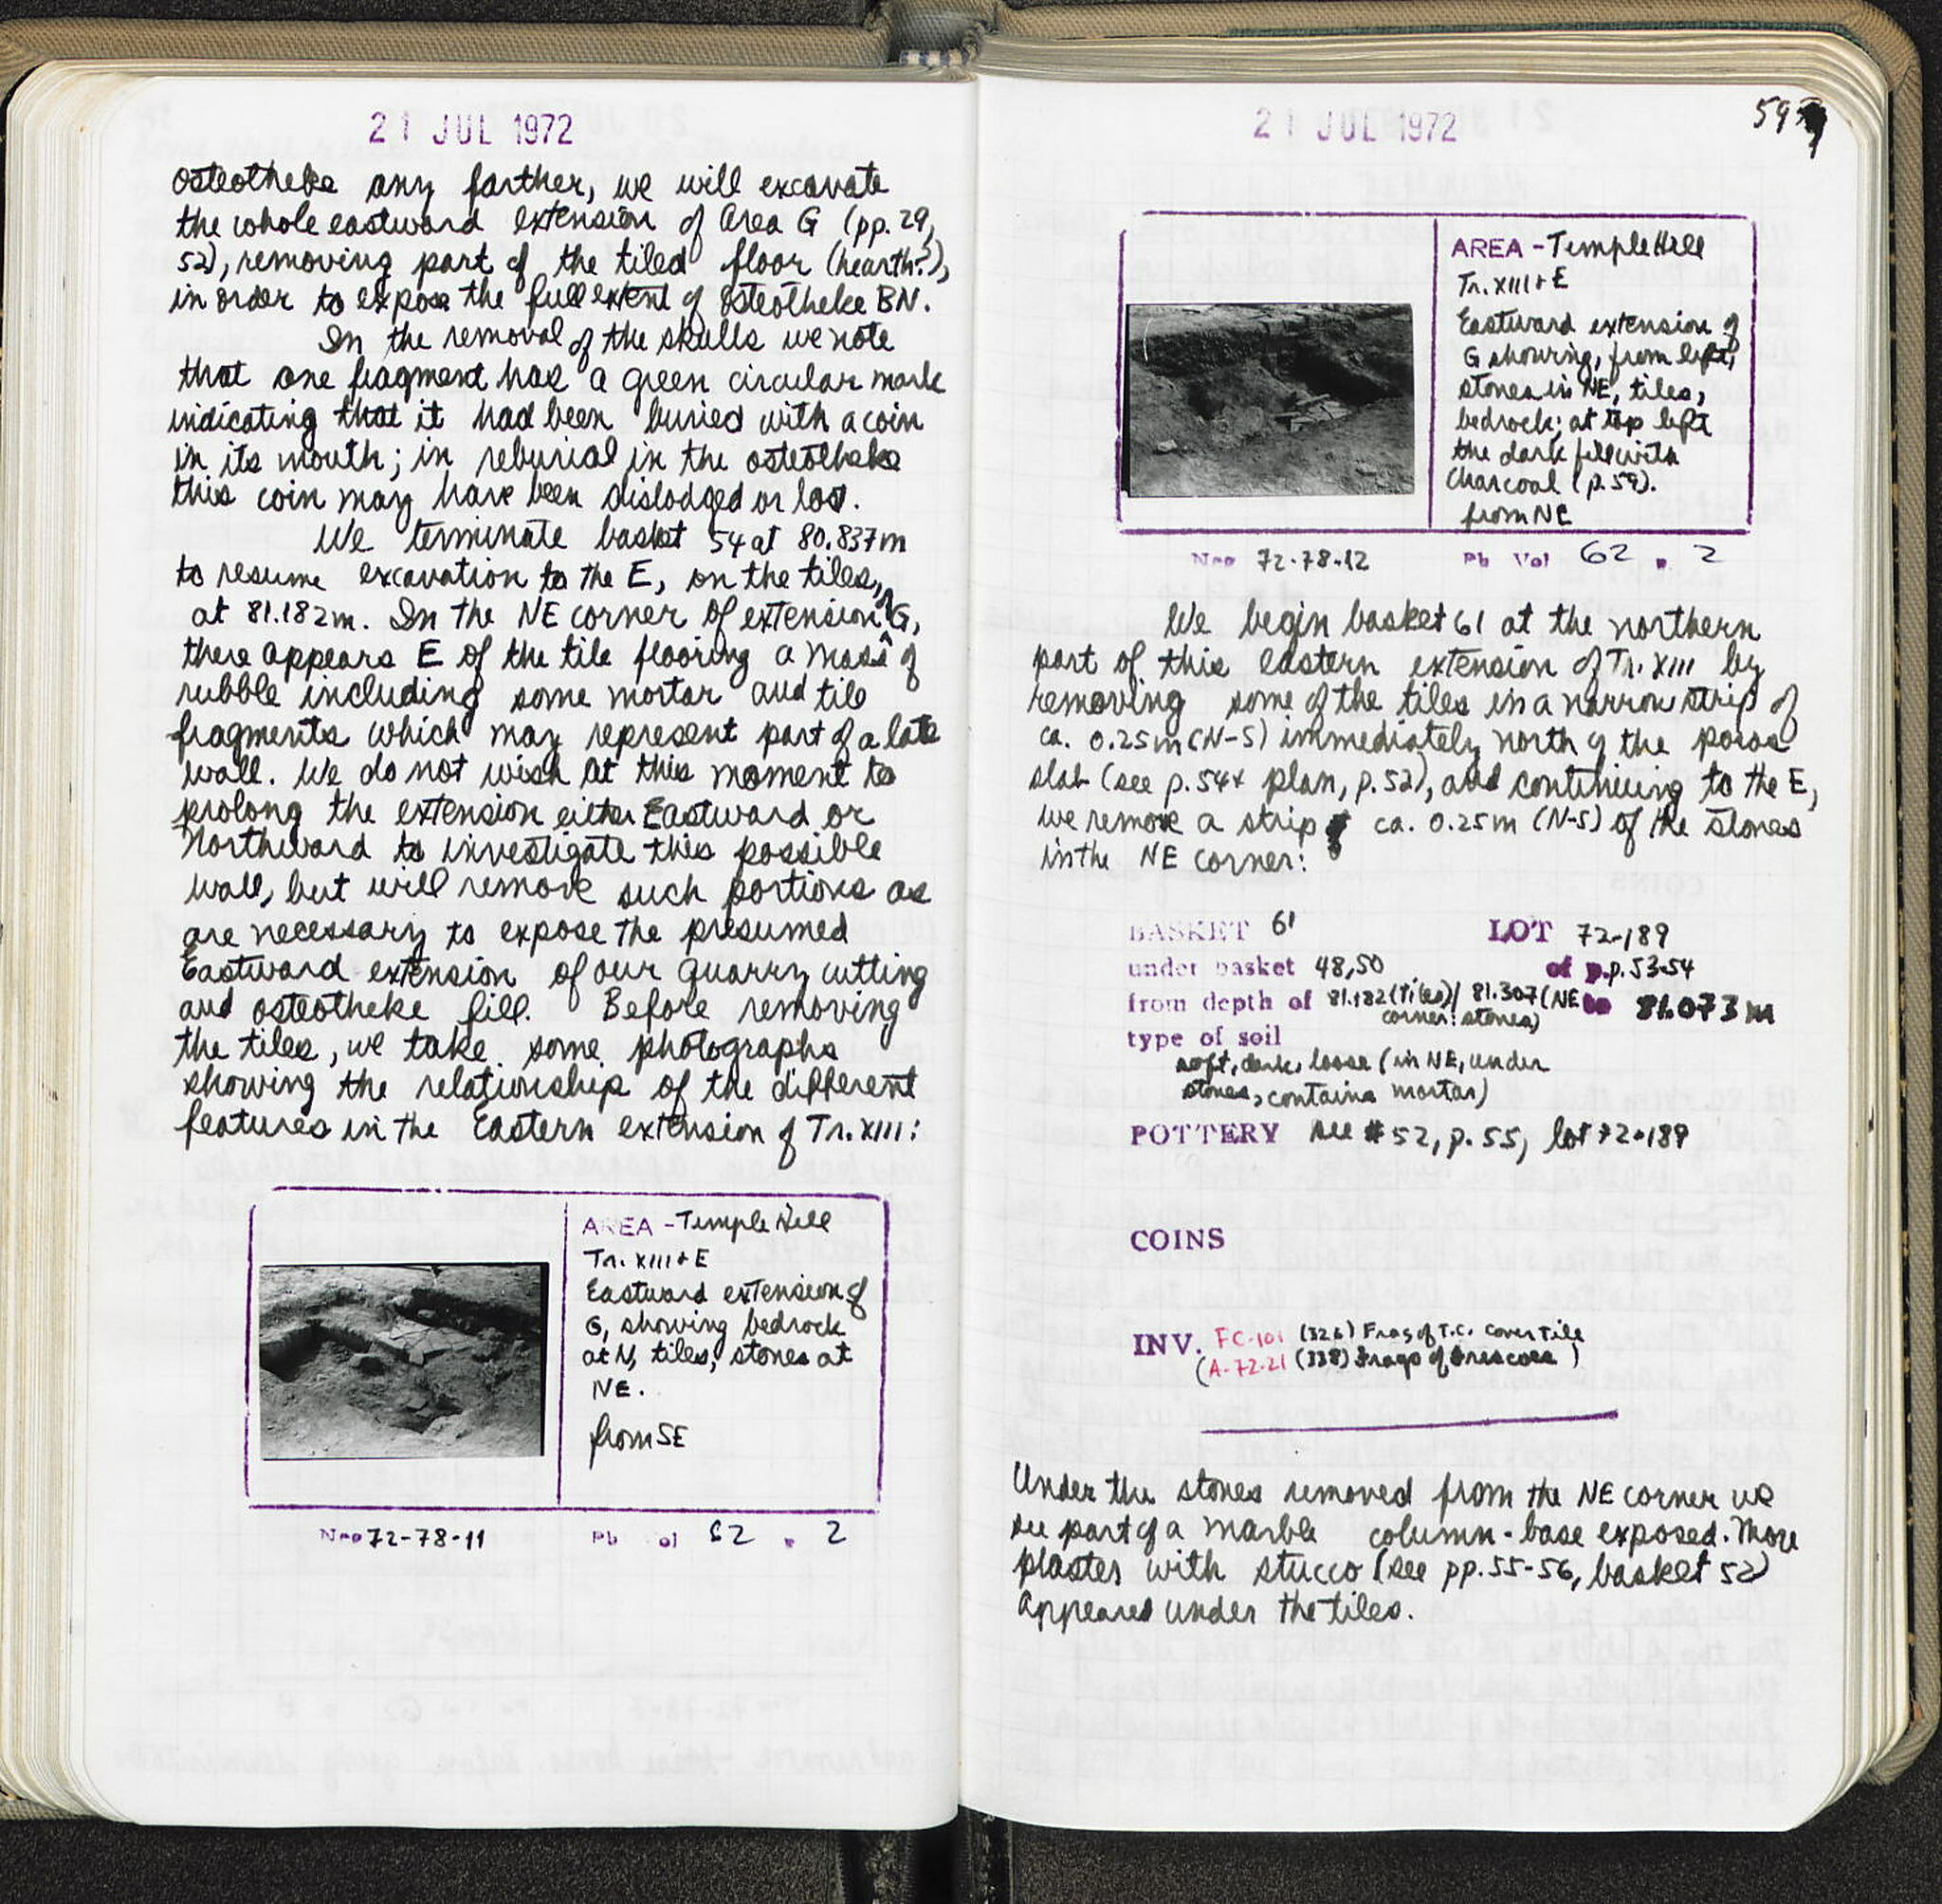 21 JUL 1972
osteotheke any farther, we will excavate
the whole eastward extension of Area G (pp. 29,
52), removing part of the tiled floor (hearth?),
in order to expose the full extent of osteotheke BN.
In the removal of the skulls we note
that one fragment has a green circular mark
indicating that it had been buried with a coin
in its mouth; in reburial in the osteotheke
this coin may have been dislodged or lost.
We terminate basket 54 at 80.837m
to resume excavation to the E, on the tiles,
at 81.182m. In the NE corner of extension G,
there appears E of the tile flooring a mass of
rubble including some mortar and tile
fragments which may represent part of a late
wall. We do not wish at this moment to
prolong the extension either Eastward or
Northward to investigate this possible
wall, but will remove such portions as
are necessary to expose the presumed
Eastward extension of our quarry cutting
and osteotheke fill. Before removing
the tiles, we take some photographs
showing the relationship of the different
features in the Eastern extension of Tr. XIII:
AREA - Temple Hill
Tr. XIII + E
Eastward extension of
G, showing bedrock
at N, tiles, stones at
NE.
from SE
Neg 72-78-11 Pb Vol 62 p. 2
21 JUL 1972
59
AREA - Temple Hill
Tr. XIII + E
Eastward extension of
G showing, from left,
stones in NE, tiles,
bedrock; at top left
the dark fill with
charcoal (p. 59).
from NE
Neg 72-78-12 Pb Vol 62 p. 2
We begin basket 61 at the northern
part of this eastern extension of Tr. XIII by
removing some of the tiles in a narrow strip of
ca. 0.25m (N-S) immediately north of the poros
slab (see p. 54 + plan, p. 52), and continuing to the E,
we remove a strip ca. 0.25m (N-S) of the stones
in the NE corner:
BASKET 61 LOT 72-189
under basket 48,50 of p.p. 53-54
from depth of 81.182 (tiles) / 81.307 (NE corner: stones) to 81.073 m
type of soil
soft, dark, loose (in NE, under
stones, contains mortar)
POTTERY see #52, p. 55, lot 72-189
COINS
INV. FC-101 (326) Frag of T.C. cover tile
(A-72-21 (338) Frags of frescoes)
Under the stones removed from the NE corner we
see part of a marble column-base exposed. More
plaster with stucco (see pp. 55-56, basket 52)
appeared under the tiles.